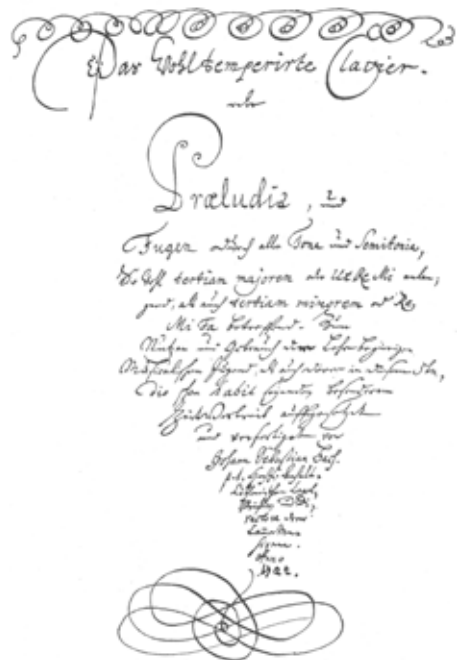 Das Wohltemperirte Clavier.
oder
Præludia, und
Fugen durch alle Tone und Semitonia,
So wohl tertiam majorem oder Ut Re Mi anlan-
gend, als auch tertiam minorem oder Re
Mi Fa betreffend. Zum
Nutzen und Gebrauch der Lehrbegierigen
Musicalischen Jugend, als auch derer in diesem stu-
dio schon habil seyenden besonderem
ZeitVertreib auffgesetzet
und verfertiget von
Johann Sebastian Bach.
p. t.
Anno
1722.